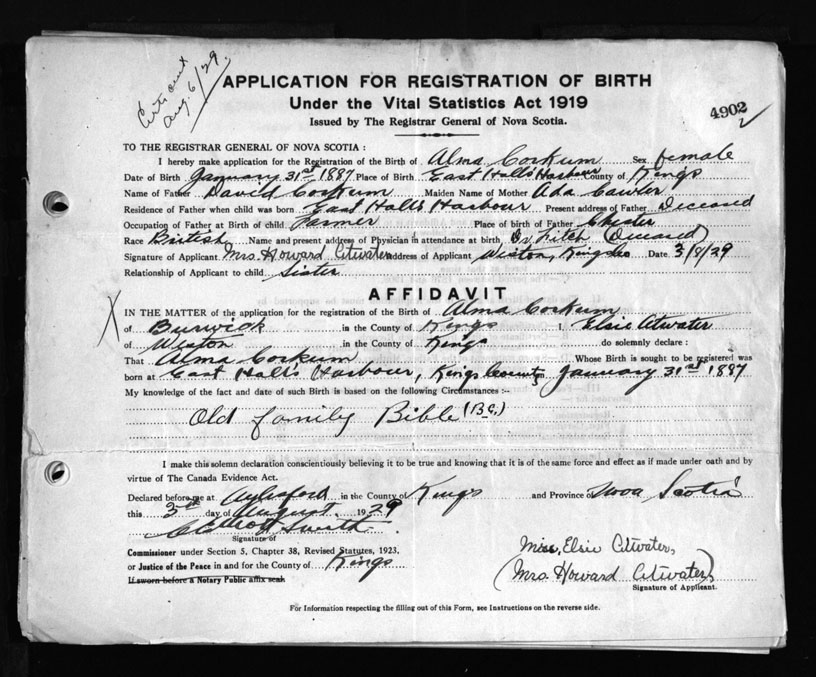 Cert sent
Aug 6/29.
APPLICATION FOR REGISTRATION OF BIRTH
Under the Vital Statistics Act 1919
Issued by The Registrar General of Nova Scotia.
4902
TO THE REGISTRAR GENERAL OF NOVA SCOTIA :
I hereby make application for the Registration of the Birth of Alma Corkum Sex female
Date of Birth January 31st 1887 Place of Birth East Halls Harbour County of Kings
Name of Father David Corkum Maiden Name of Mother Ada Cawler
Residence of Father when child was born East Halls Harbour Present address of Father Deceased
Occupation of Father at Birth of child Farmer Place of birth of Father Chester
Race British Name and present address of Physician in attendance at birth Dr Fitch (Deceased)
Signature of Applicant Mrs. Howard Atwater address of Applicant Weston, Kings Co Date 3/8/29
Relationship of Applicant to child Sister
AFFIDAVIT
IN THE MATTER of the application for the registration of the Birth of Alma Corkum
of Burwick in the County of Kings I Elsie Atwater
of Weston in the County of Kings do solemnly declare :
That Alma Corkum Whose Birth is sought to be registered was
born at East Hall's Harbour, Kings County January 31st 1887
My knowledge of the fact and date of such Birth is based on the following Circumstances :-
Old family Bible (B.C.)
I make this solemn declaration conscientiously believing it to be true and knowing that it is of the same force and effect as if made under oath and by
virtue of The Canada Evidence Act.
Declared before me at Aylesford in the County of Kings and Province Nova Scotia
this 3rd day of August. 1929
Smith
Signature of
Commissioner under Section 5, Chapter 38, Revised Statutes, 1923,
or Justice of the Peace in and for the County of Kings
If sworn before a Notary Public affix seal
Miss, Elsie Atwater,
(Mrs. Howard Atwater)
Signature of Applicant.
For Information respecting the filling out of this Form, see Instructions on the reverse side.